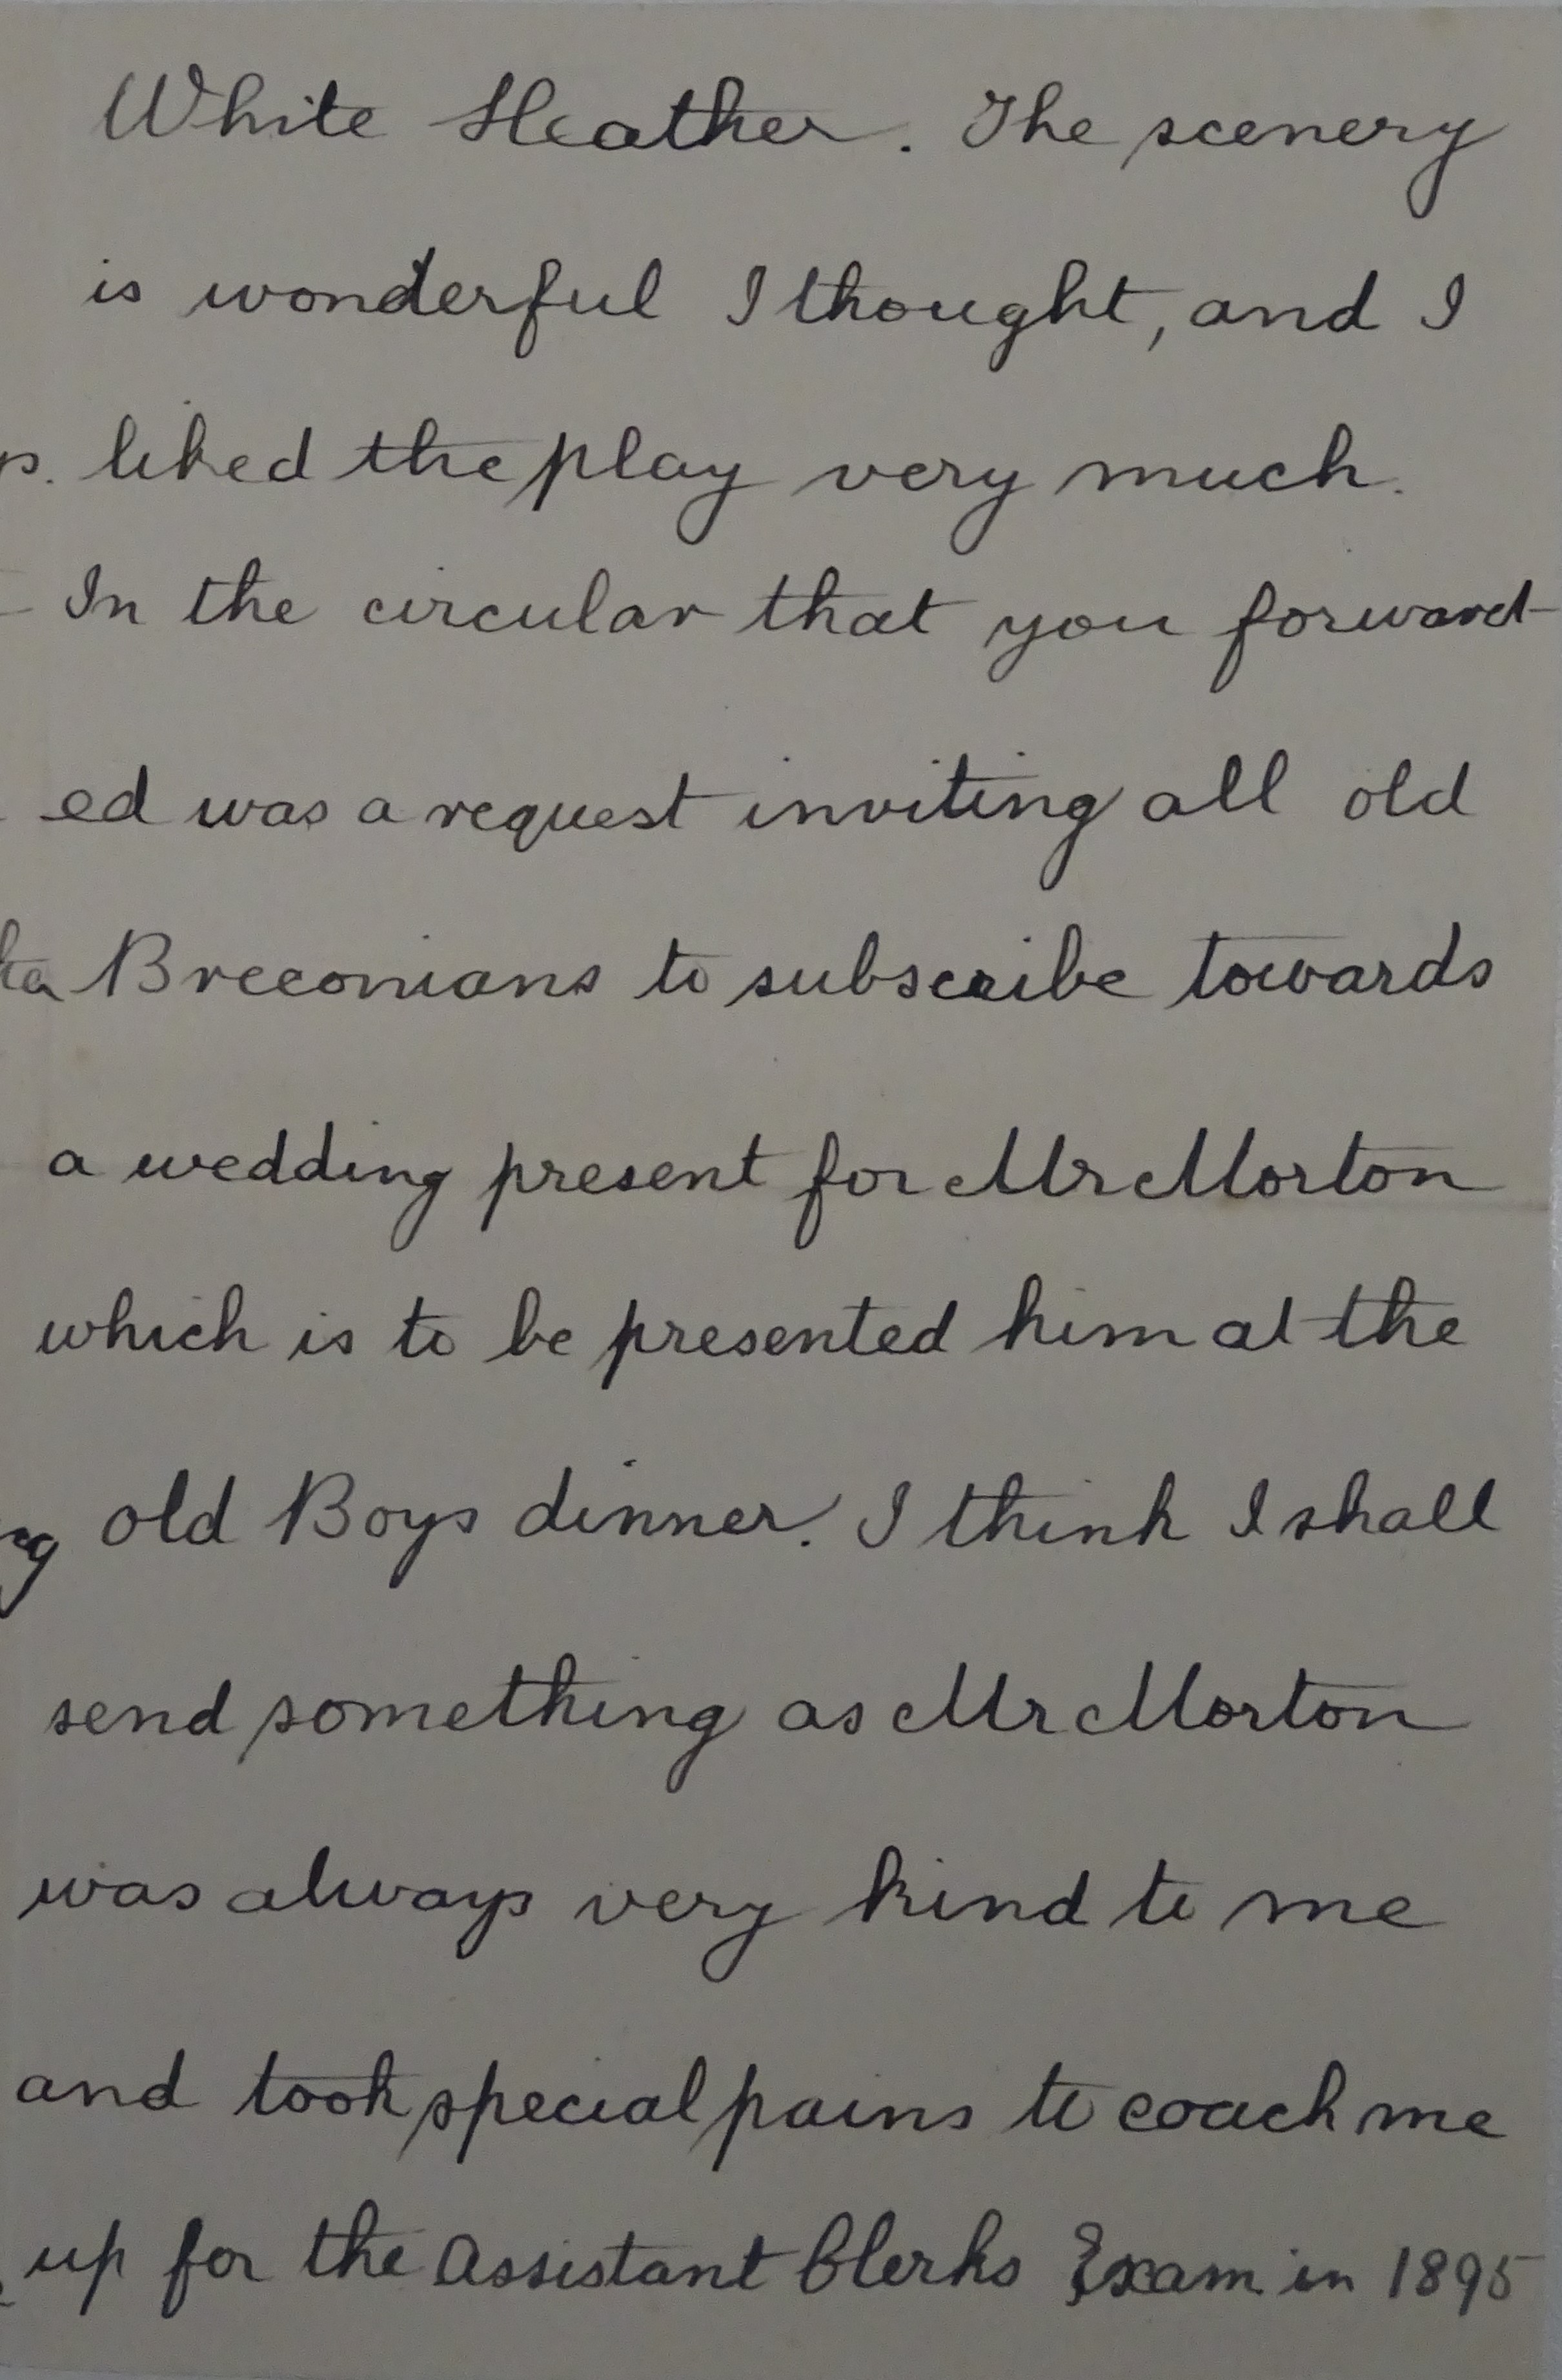 White Heather. The scenery
is wonderful I thought, and I
liked the play very much.
In the circular that you forward-
ed was a request inviting all old
Breconians to subscribe towards
a wedding present for Mr Morton
which is to be presented him at the
old Boys dinner. I think I shall
send something as Mr Morton
was always very kind to me
and took special pains to coach me
up for the Assistant Clerks Exam in 1895